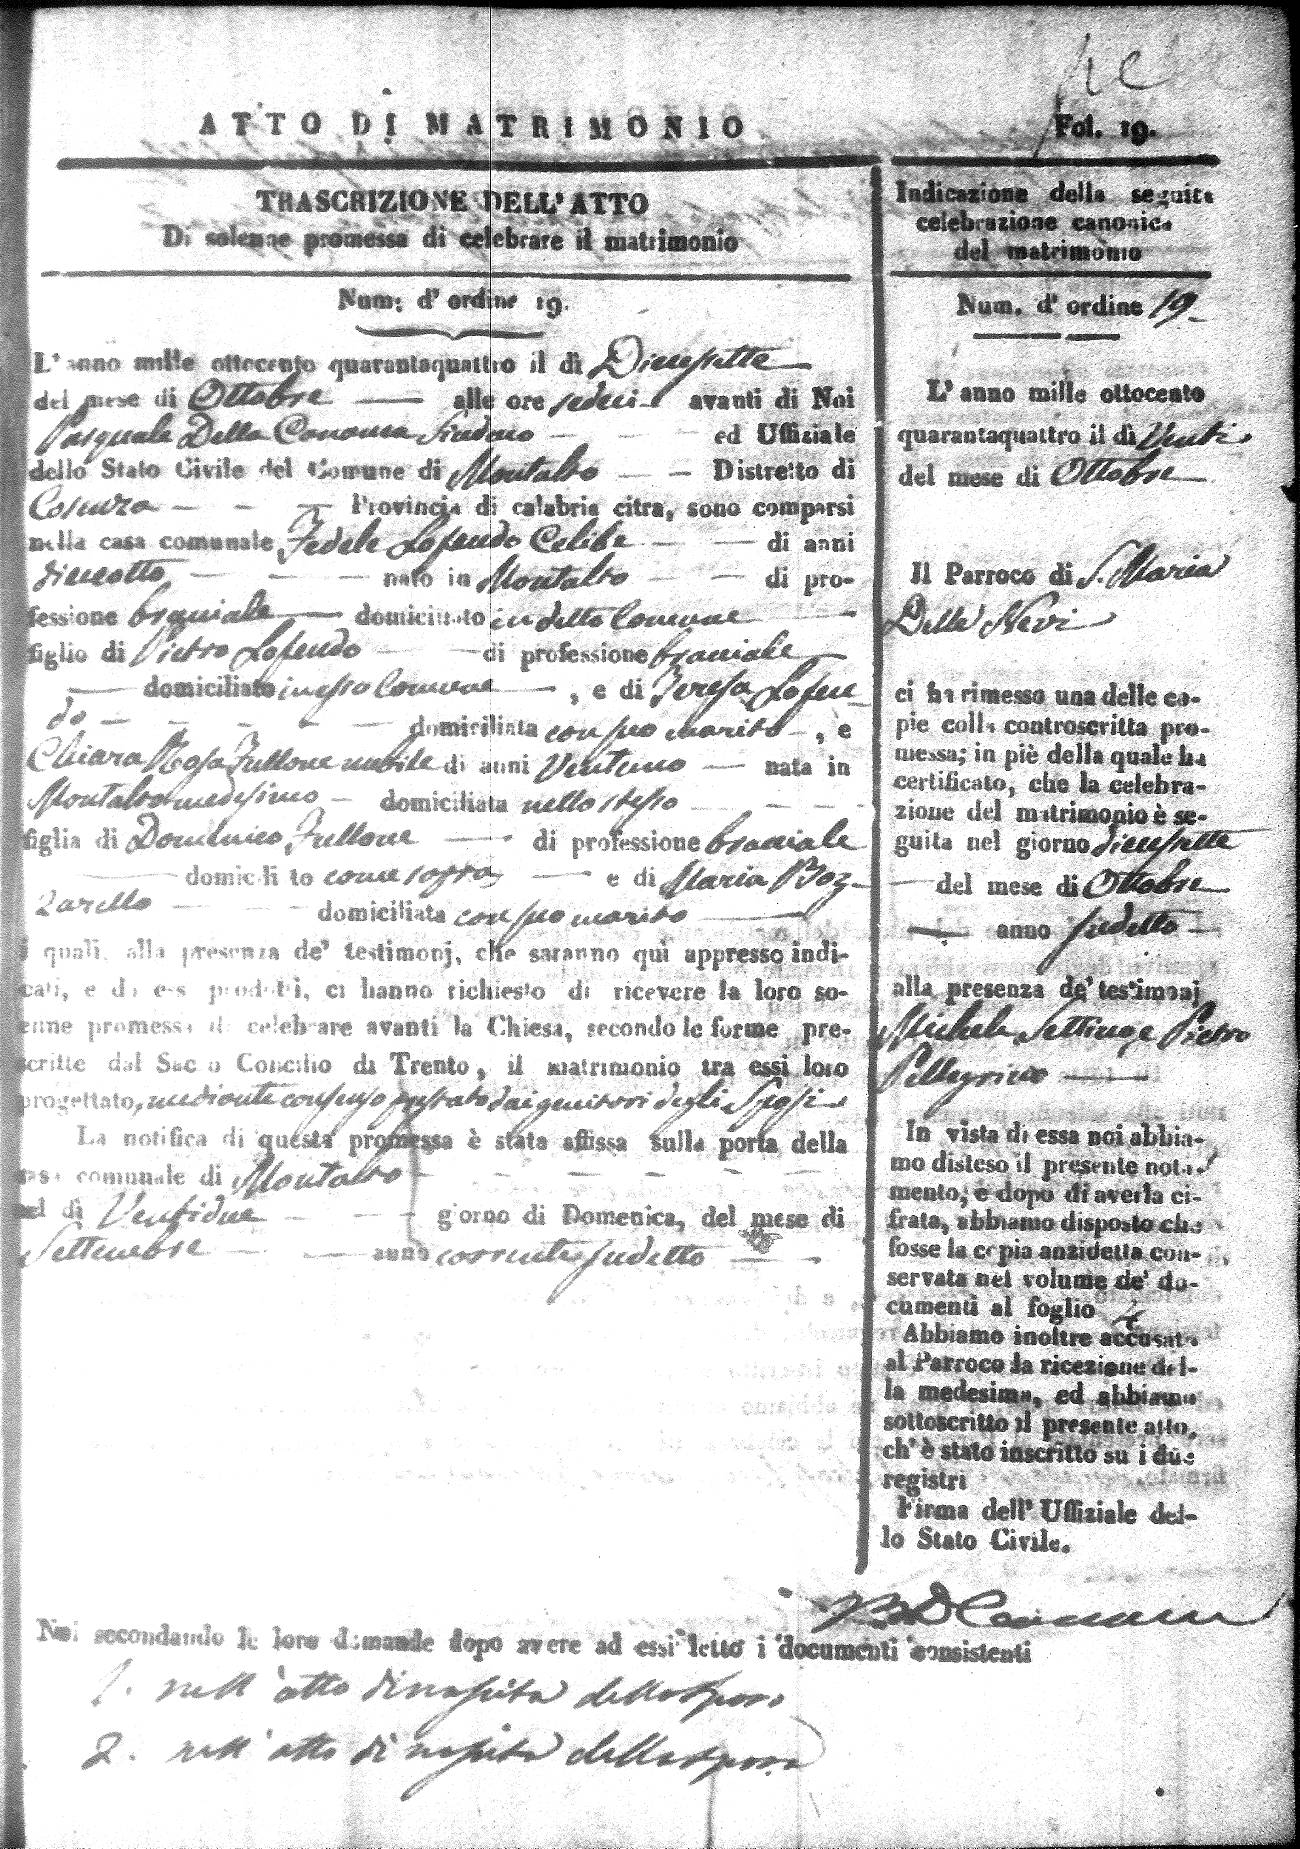 ATTO DI MATRIMONIO
Fol. 19.
TRASCRIZIONE DELL'ATTO
Di solenne promessa di celebrare il matrimonio
Num: d'ordine 19.
L'anno mille ottocento quarantaquattro il dì Diciessette
del mese di Ottobre alle ore sedici avanti di Noi
Pasquale Della Conomia Sindaco ed Uffiziale
dello Stato Civile del Comune di Montalto Distretto di
Cosenza Provincia di calabria citra, sono comparsi
nella casa comunale Fedele Lofendo Celibe di anni
dieciotto nato in Montalto di pro-
fessione bracciale domiciliato in detto Comune
figlio di Pietro Lofendo di professione bracciale
domiciliato in esso Comune, e di Teresa Lofen
do domiciliata con suo marito, e
Chiara Rosa Fullone nubile di anni Ventuno nata in
Montalto medesimo domiciliata nello stesso
figlia di Domenico Fullone di professione bracciale
domicilito come sopra e di Maria Boz
zarello domiciliata con suo marito
i quali, alla presenza de' testimonj, che saranno quì appresso indi-
cati, e da essi prodotti, ci hanno richiesto di ricevere la loro so-
enne promessa di celebrare avanti la Chiesa, secondo le forme pre-
scritte dal Sacro Concilio di Trento, il matrimonio tra essi loro
progettato, mediante consenso prestato dai genitori degli Sposi
La notifica di questa promessa è stata affissa sulla porta della
casa comunale di Montalto
nel dì Ventidue giorno di Domenica, del mese di
Settembre anno corrente sudetto
Noi secondando le loro domande dopo avere ad essi letto i documenti consistenti
1. nell'atto di nascita dello sposo
2. nell'atto di nascita della sposa
Indicazione della seguita
celebrazione canonica
del matrimonio
Num. d'ordine 19
L'anno mille ottocento
quarantaquattro il dì Venti
del mese di Ottobre
Il Parroco di S. Maria
Della Nevi
ci ha rimesso una delle co-
pie colla controscritta pro-
messa; in piè della quale ha
certificato, che la celebra-
zione del matrimonio è se-
guita nel giorno diciessette
del mese di Ottobre
anno sudetto
alla presenza de' testimonj
Michele Settinge Pietro
Pellegrino
In vista di essa noi abbia-
mo disteso il presente nota
mento, e dopo di averla ci-
frata, abbiamo disposto che
fosse la copia anzidetta con-
servata nel volume de' do-
cumenti al foglio
Abbiamo inoltre accusato
al Parroco la ricezione del-
la medesima, ed abbiamo
sottoscritto il presente atto,
ch'è stato inscritto su i due
registri
Firma dell'Uffiziale del-
lo Stato Civile.